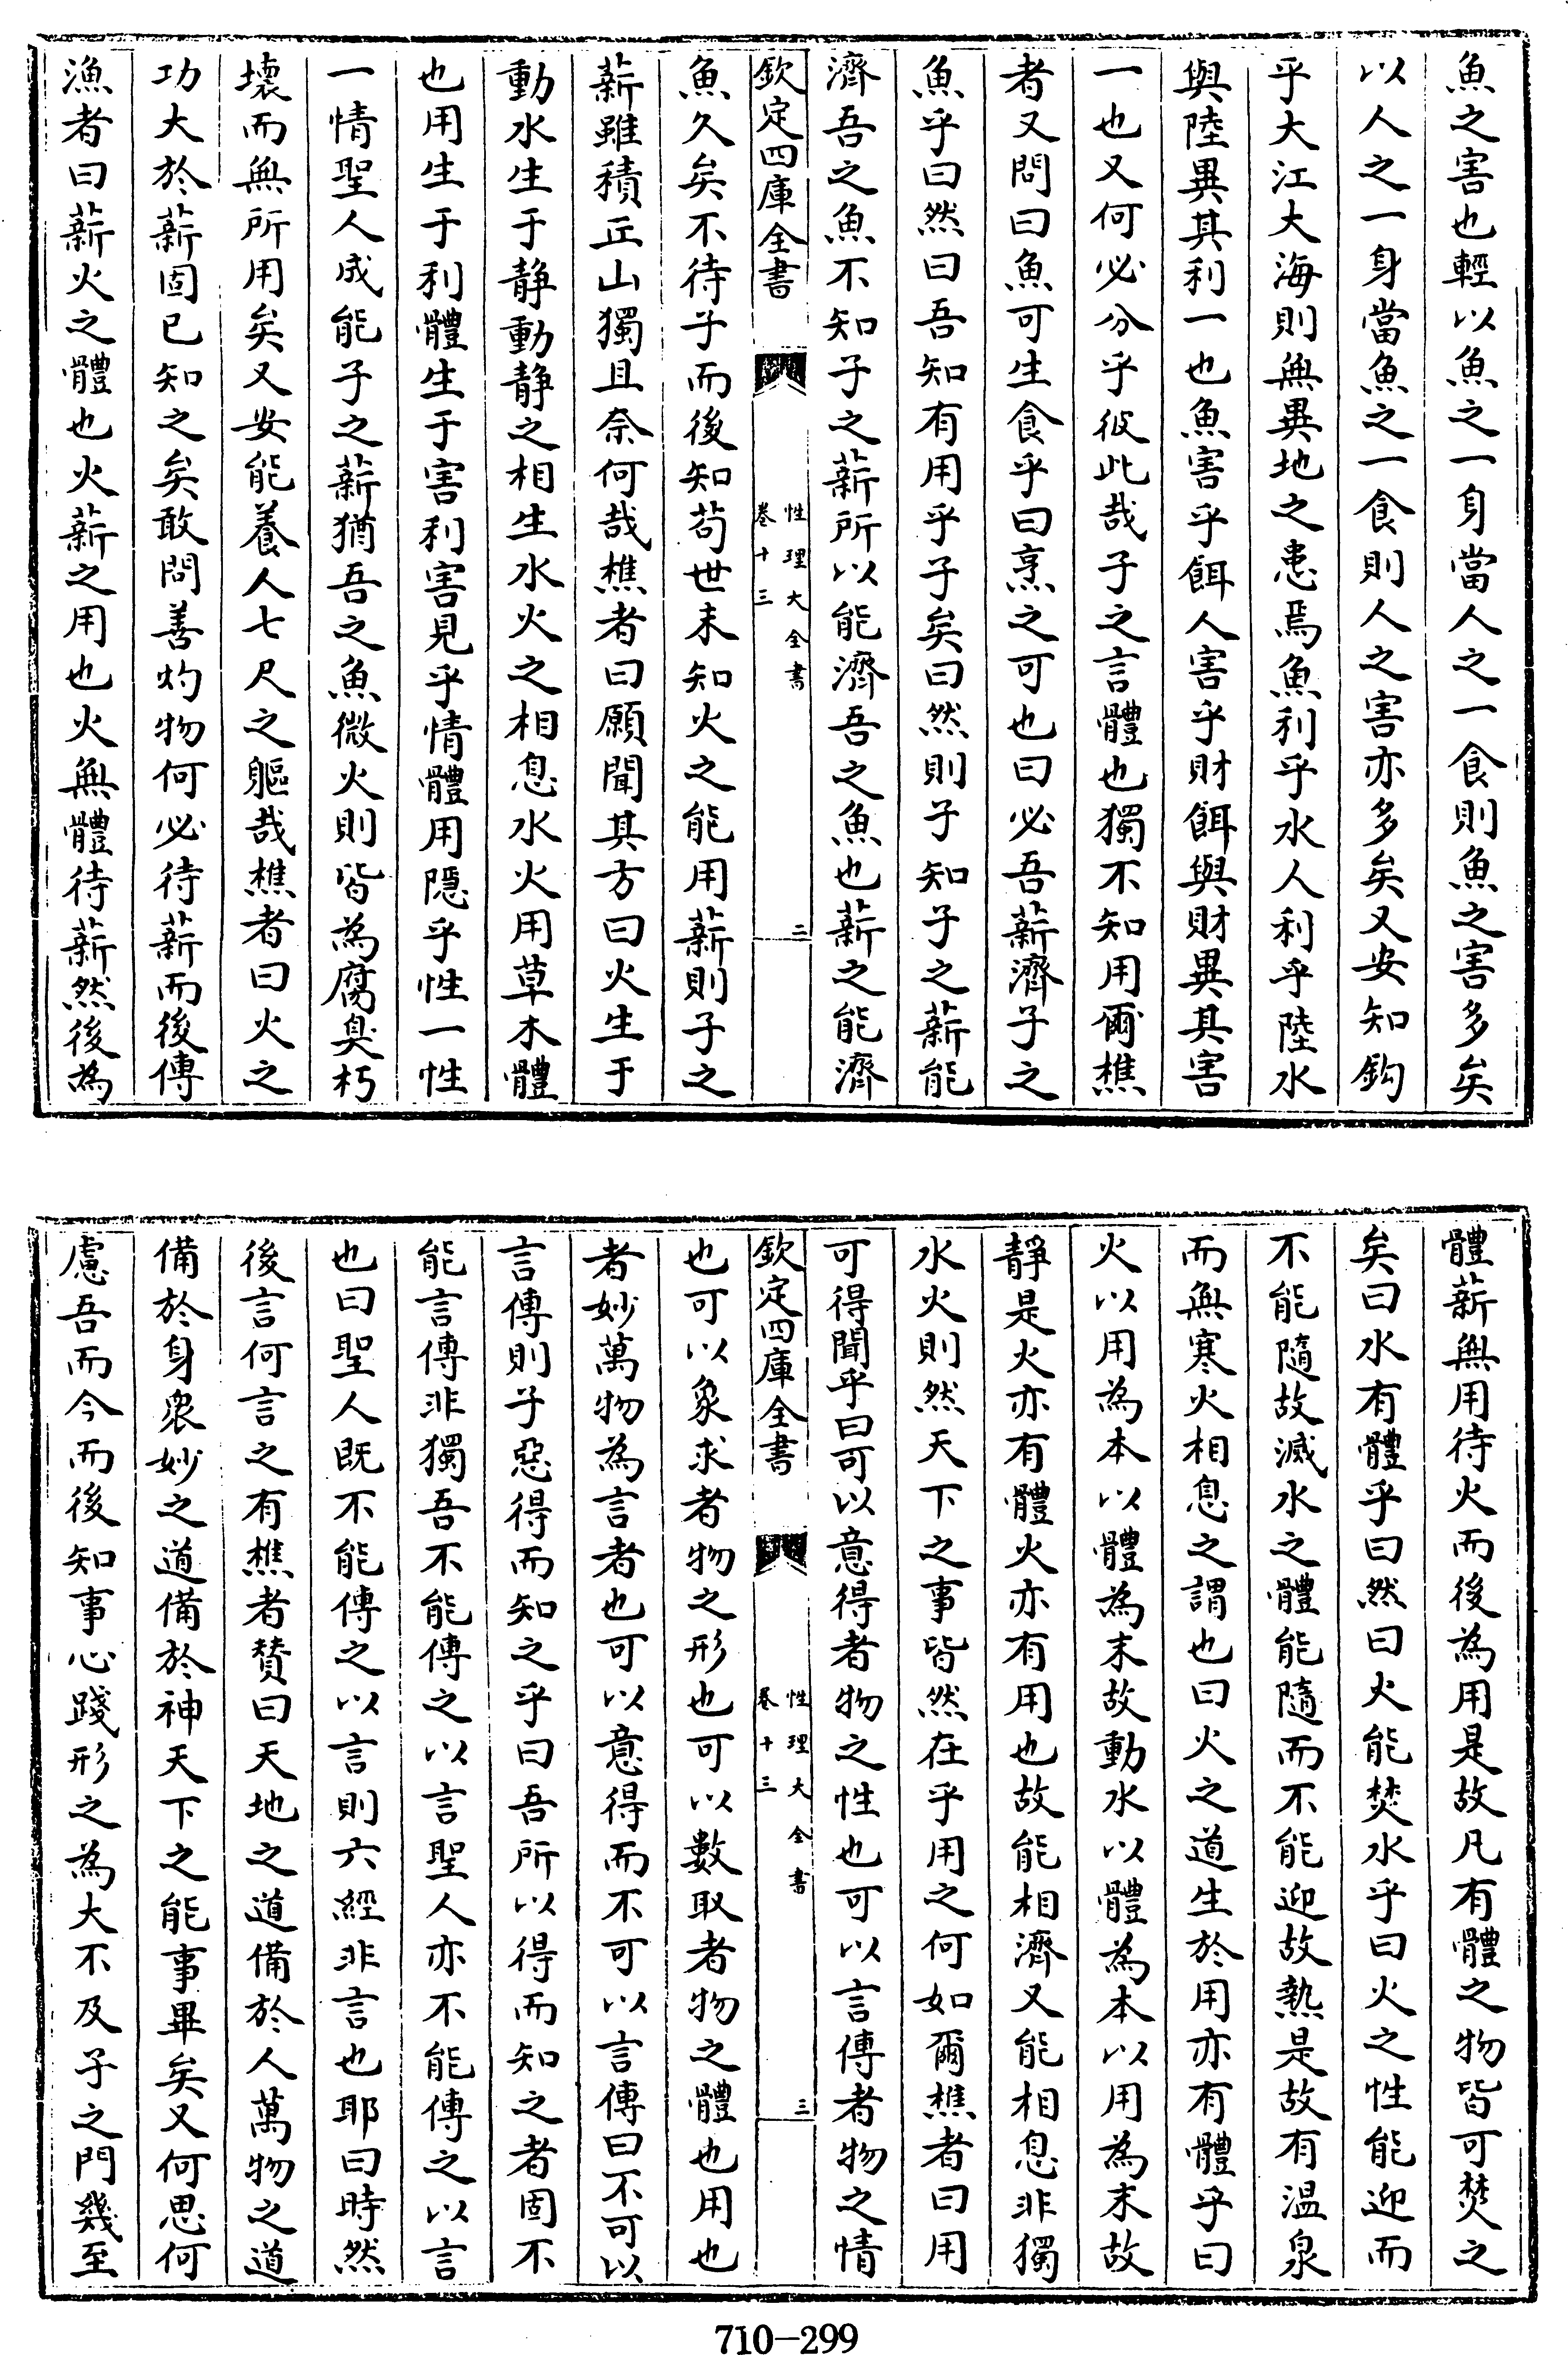 魚之害也輕以魚之一身當人之一食則魚之害多矣
以人之一身當魚之一食則人之害亦多矣又安知鈎
乎大江大海則無異地之患焉魚利乎水人利乎陸水
與陸異其利一也魚害乎餌人害乎財餌與財異其害
一也又何必分乎彼此哉子之言體也獨不知用爾樵
者又問曰魚可生食乎曰烹之可也曰必吾薪濟子之
魚乎曰然曰吾知有用乎子矣曰然則子知子之薪能
濟吾之魚不知子之薪所以能濟吾之魚也薪之能濟
欽定四庫全書
性理大全書
卷十三
二
魚久矣不待子而後知苟世未知火之能用薪則子之
薪雖積丘山獨且奈何哉樵者曰願聞其方曰火生于
動水生于静動静之相生水火之相息水火用草木體
也用生于利體生于害利害見乎情體用隱乎性一性
一情聖人成能子之薪猶吾之魚微火則皆為腐臭朽
壞而無所用矣又安能養人七尺之軀哉樵者曰火之
功大於薪固已知之矣敢問善灼物何必待薪而後傳
漁者曰薪火之體也火薪之用也火無體待薪然後為
體薪無用待火而後為用是故凡有體之物皆可焚之
矣曰水有體乎曰然曰火能焚水乎曰火之性能迎而
不能隨故滅水之體能隨而不能迎故熱是故有温泉
而無寒火相息之謂也曰火之道生於用亦有體乎曰
火以用為本以體為末故動水以體為本以用為末故
靜是火亦有體火亦有用也故能相濟又能相息非獨
水火則然天下之事皆然在乎用之何如爾樵者曰用
可得聞乎曰可以意得者物之性也可以言傳者物之情
欽定四庫全書
性理大全書
卷十三
三
也可以象求者物之形也可以數取者物之體也用也
者妙萬物為言者也可以意得而不可以言傳曰不可以
言傳則子惡得而知之乎曰吾所以得而知之者固不
能言傳非獨吾不能傳之以言聖人亦不能傳之以言
也曰聖人既不能傳之以言則六經非言也耶曰時然
後言何言之有樵者賛曰天地之道備於人萬物之道
備於身衆妙之道備於神天下之能事畢矣又何思何
慮吾而今而後知事心踐形之為大不及子之門幾至
710-299